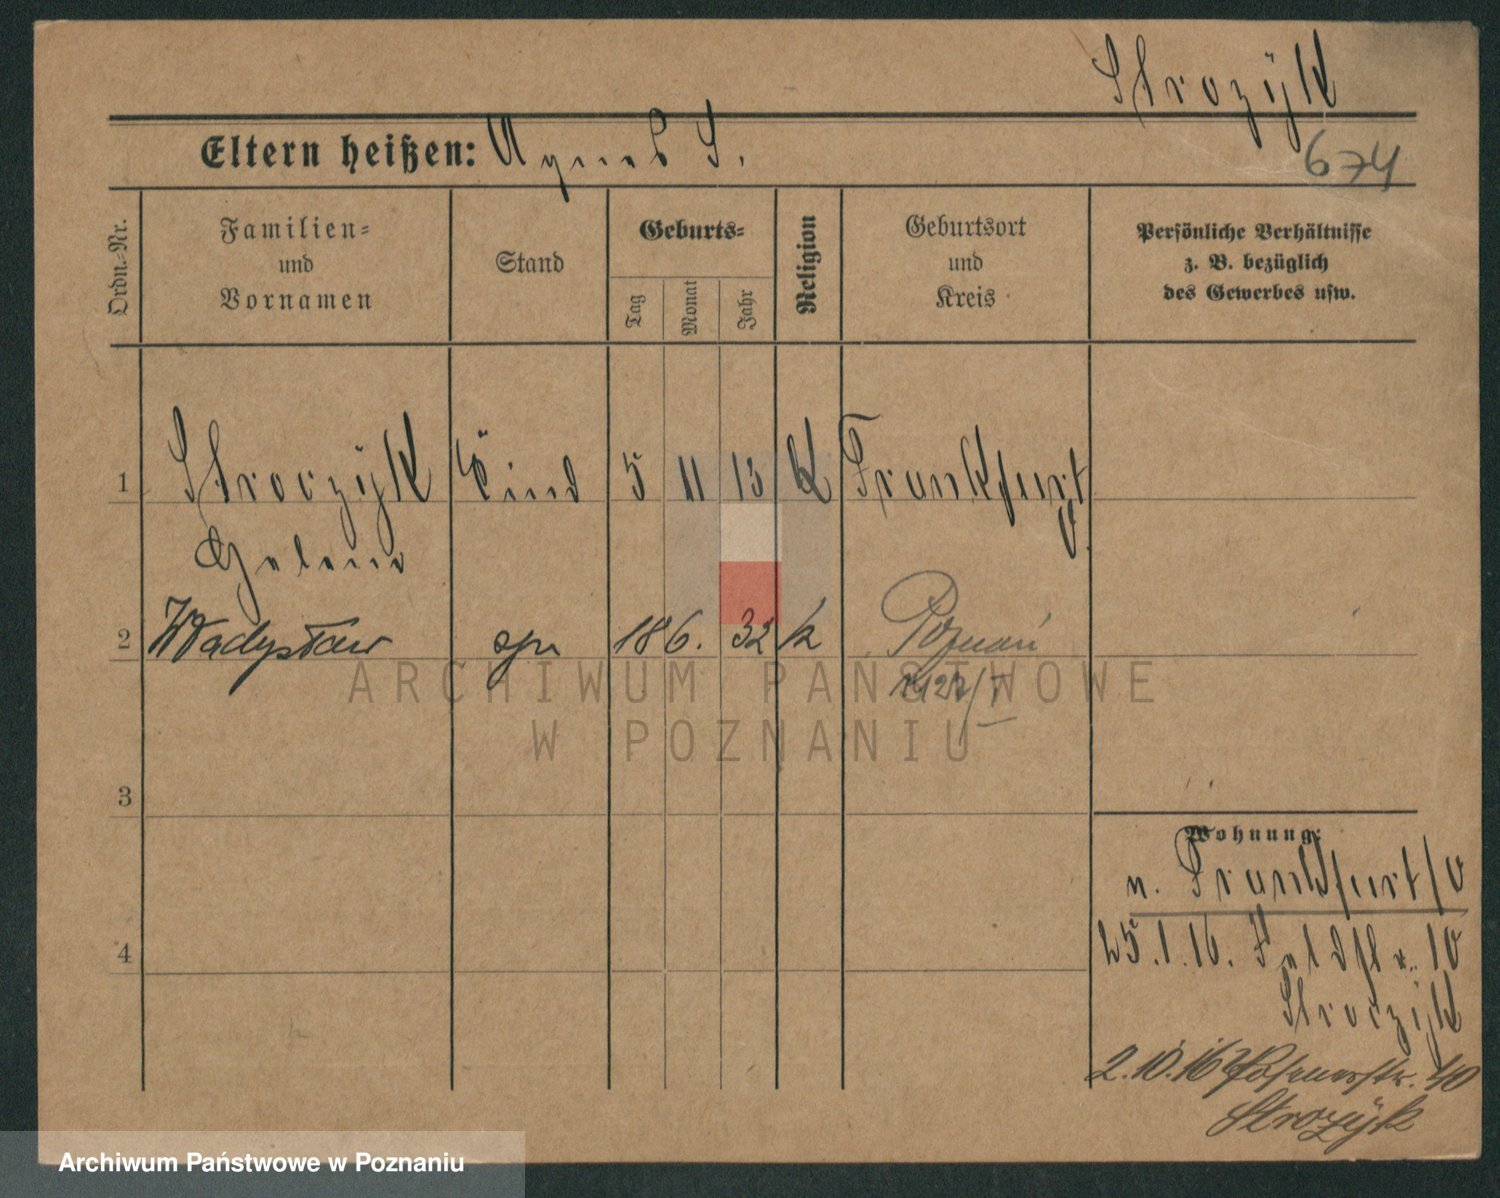 Strozÿk
674
Eltern heißen: Agnes S.
Ordn.-Nr.
Familien-
und
Vornamen
Stand
Geburts-
Tag
Monat
Jahr
Religion
Geburtsort
und
Kreis
Persönliche Verhältnisse
z. B. bezüglich
des Gewerbes usw.
1 Stroczÿk Kind 5 11 13 K Frankfurt
Helene
2 Władysław syn 18 6. 32 k Poznań
ARCHIWUM PAŃSTWOWE
W POZNANIU
3
Wohnung:
n. Frankfurt/O
4
25.1.16. Feldstr. 10
Stroczÿk
2.10.16 Posenerstr. 40
Strozÿk
Archiwum Państwowe w Poznaniu